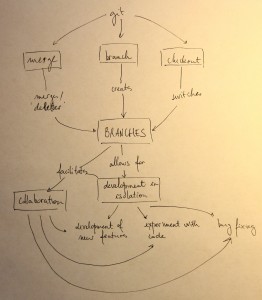 git
merge
branch
checkout
creates
merges/
deletes
switches
BRANCHES
facilitates
allows for
collaboration
development in
isolation
development of
new features
experiment with
code
bug fixing